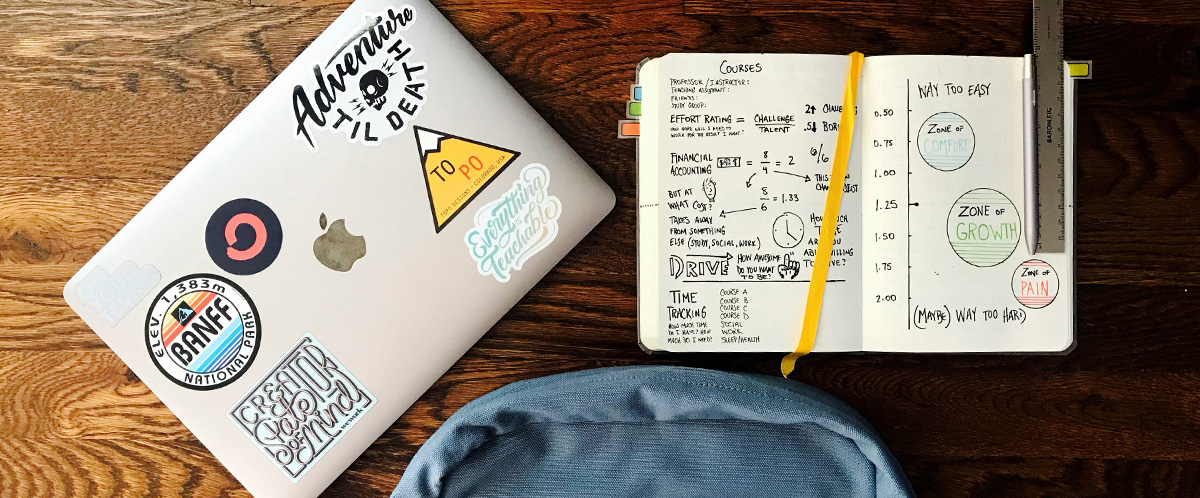 Adventure
'TIL DEATH
TOPO
TOPO DESIGNS • COLORADO, USA
Everything
Teachable
ELEV. 1,383m
BANFF
NATIONAL PARK
CREATOR
State
of Mind
NETWORK
COURSES
PROFESSOR / INSTRUCTOR:
TEACHING ASSISTANT:
FRIENDS:
STUDY GROUP:
EFFORT RATING = CHALLENGE
TALENT
HOW HARD WILL I NEED TO
WORK FOR THE RESULT I WANT?
2↑
.5↓
FINANCIAL
ACCOUNTING
= 8/4 = 2
6/6
8/6 = 1.33
BUT AT
WHAT COST?
TAKES AWAY
FROM SOMETHING
ELSE (STUDY, SOCIAL, WORK)
HOW MUCH
ARE YOU
DRIVE
HOW AWESOME
DO YOU WANT
TO BE?
TIME
TRACKING
HOW MUCH TIME
DO I HAVE? HOW
MUCH DO I NEED?
COURSE A
COURSE B
COURSE C
COURSE D
SOCIAL
WORK
SLEEP/HEALTH
WAY TOO EASY
0.50
0.75
1.00
1.25
1.50
1.75
2.00
ZONE OF
COMFORT
ZONE OF
GROWTH
ZONE OF
PAIN
(MAYBE) WAY TOO HARD